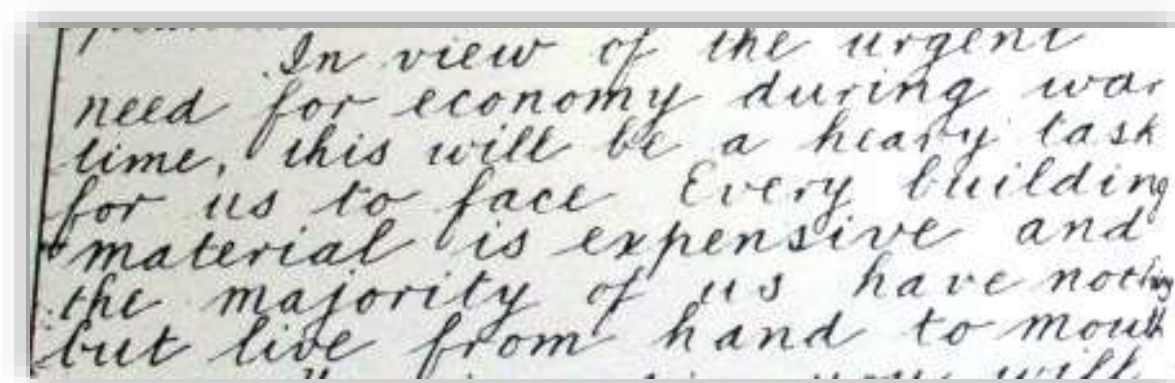 In view of the urgent
need for economy during war
time, this will be a heavy task
for us to face Every building
material is expensive and
the majority of us have nothing
but live from hand to mouth
you will